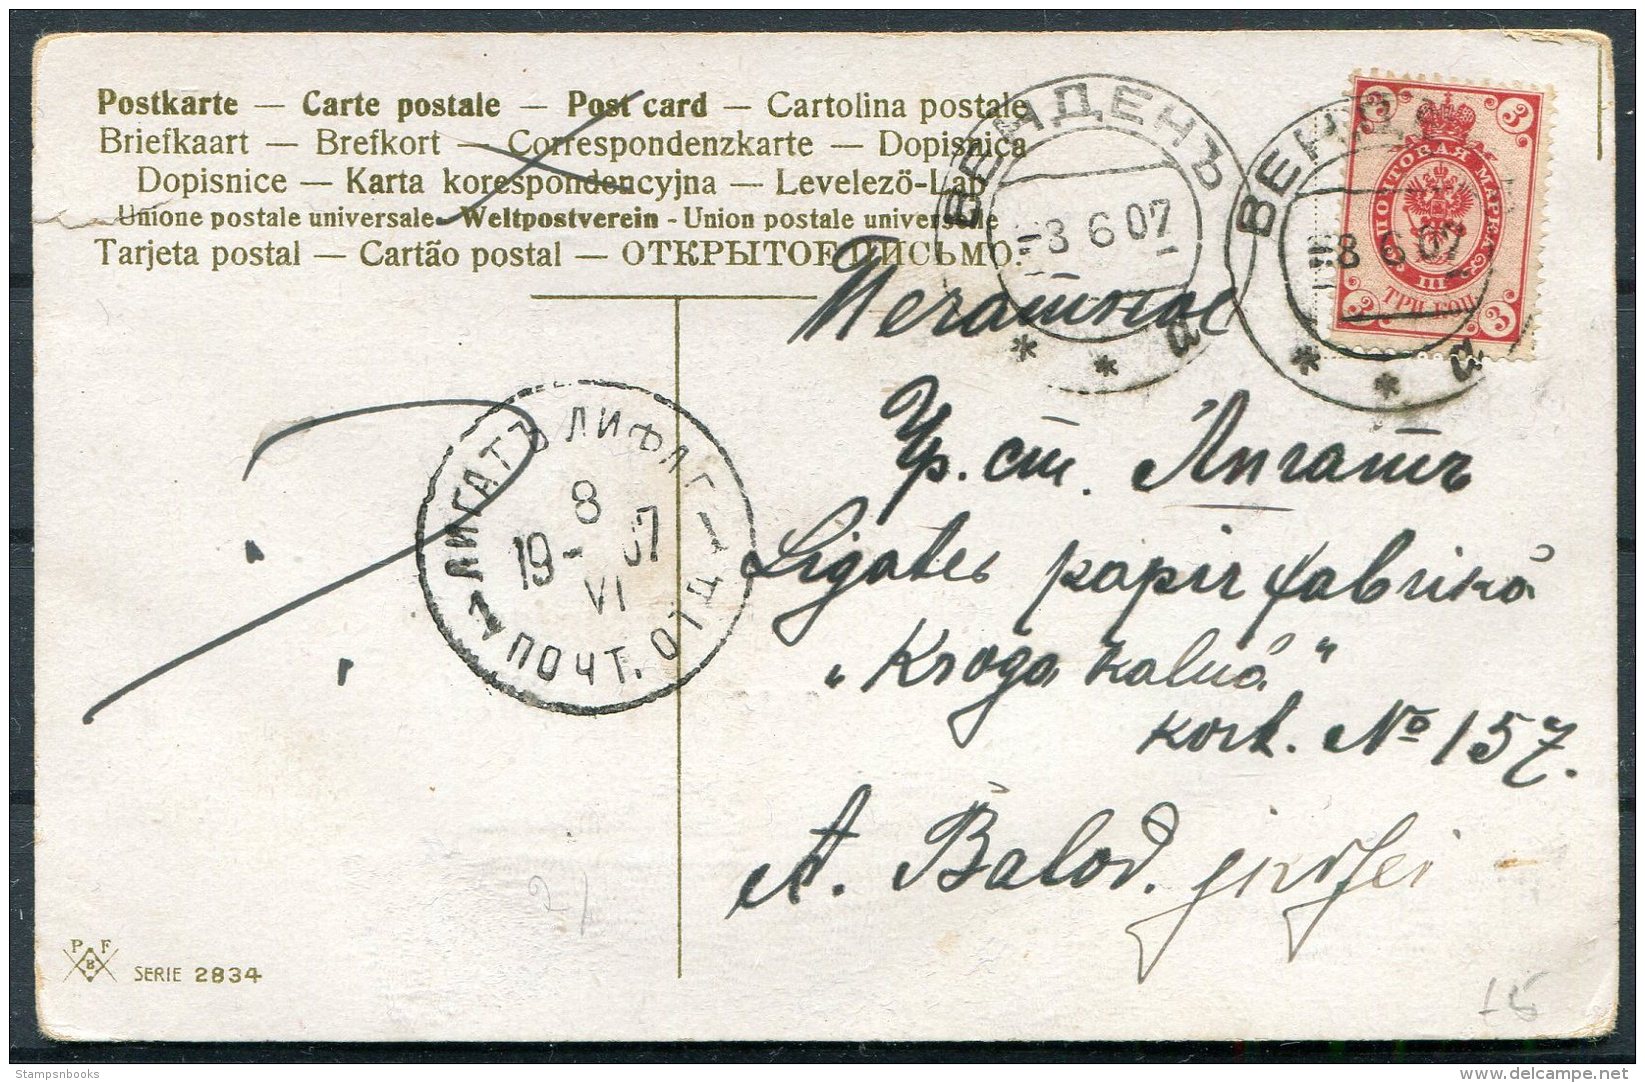 Postkarte — Carte postale — Post card — Cartolina postale
Briefkaart — Brefkort — Correspondenzkarte — Dopisnica
Dopisnice — Karta korespondencyjna — Levelező-Lap
Unione postale universale - Weltpostverein - Union postale universelle
Tarjeta postal — Cartão postal — ОТКРЫТОЕ ПИСЬМО.
ВЕНДЕНЪ
-8 6 07
* * а
ВЕНДЕНЪ
-8 6 07
* * а
3 3
ПОЧТОВАЯ МАРКА
III
ТРИ КОП.
3 3
Печатное
ЛИГАТЪ ЛИФЛ Г
8
19 - 07
VI
1 ПОЧТ. ОТД. 1
ст. Лигатъ
Ligates papir fabrikā
„Kroga kalnā"
kort. No 157.
A. Balod.
P F
B
SERIE 2834
15
Stampsnbooks
www.delcampe.net